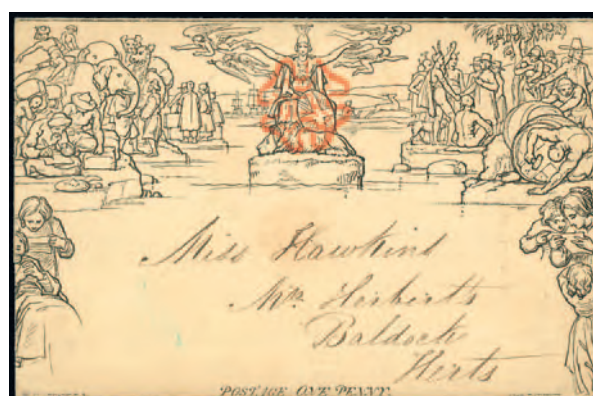 Miss Hawkins
Mrs. Herberts
Baldock
Herts
POSTAGE ONE PENNY.